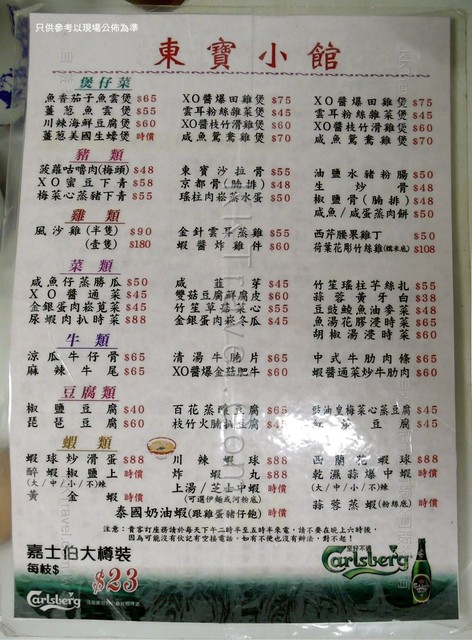 只供參考以現場公佈為準
東寶小館
煲仔菜
魚香茄子魚雲煲 $65 XO醬爆田雞煲 $75 XO醬爆田雞煲 $75
薑葱魚雲煲 $55 雲耳粉絲雞煲 $45 雲耳粉絲雜菜煲 $45
川辣海鮮豆腐煲 $60 XO醬枝竹滑雞煲 $60 XO醬枝竹滑雞煲 $60
薑葱美國生蠔煲 時價 咸魚鴛鴦雞煲 $70 咸魚鴛鴦雞煲 $70
豬類
菠蘿咕嚕肉(梅頭) $48 東寶沙拉骨 $55 油鹽水豬粉腸 $50
XO蜜豆下青 $58 京都骨(腩排) $48 生炒骨 $48
梅菜心蒸豬下青 $55 瑤柱肉崧蒸水蛋 $50 椒鹽骨(腩排) $48
咸魚/咸蛋蒸肉餅 $50
雞類
風沙雞(半隻) $90 金針雲耳蒸雞 $55 西芹腰果雞丁 $50
(壹隻) $180 蝦醬炸雞件 $60 荷葉花彫竹絲雞(糯米底) $108
菜類
咸魚仔蒸勝瓜 $50 咸蛋芽 $45 竹笙瑤柱芊絲扎 $55
XO醬通菜 $45 雙菇豆腐鮮腐皮 $60 蒜蓉黃牙白 $38
金銀蛋肉崧莧菜 $45 竹笙草菇菜心 $55 豆豉鯪魚油麥菜 $48
尿蝦肉扒時菜 $88 金銀蛋肉崧冬瓜 $45 魚湯花膠浸時菜 $65
胡椒湯浸時菜 $60
牛類
涼瓜牛仔骨 $65 清湯牛𦟌片 $65 中式牛肋肉條 $65
麻辣牛尾 $65 XO醬爆金菇肥牛 $60 蝦醬通菜炒牛肋肉 $60
豆腐類
椒鹽豆腐 $40 百花蒸釀豆腐 $65 豉油皇梅菜心蒸豆腐 $45
琵琶豆腐 $60 枝竹火腩扒豆腐 $45 豆腐 $45
蝦類
蝦球炒滑蛋 $88 川辣蝦球 $88 西蘭花蝦球 $88
醉蝦椒鹽上 時價 炸蝦丸 $88 乾濕蒜爆中蝦 時價
(大/中/小/不)辣 上湯/芝士中蝦 時價 (大/中/小/不辣)
黃金蝦 時價 (可選伊麵或河粉底) 蒜蓉蒸蝦(粉絲底) 時價
泰國奶油蝦(跟雞蛋豬仔飽) 時價
注意：貴客訂座將請於每天下午二時半至五時半來電，請不要在晚上六時後，
因為可能沒有伙記有空接電話，如有不便也沒有辦法，對不起！
嘉士伯大樽裝
每枝$
$23
Carlsberg
至好不過
Carlsberg